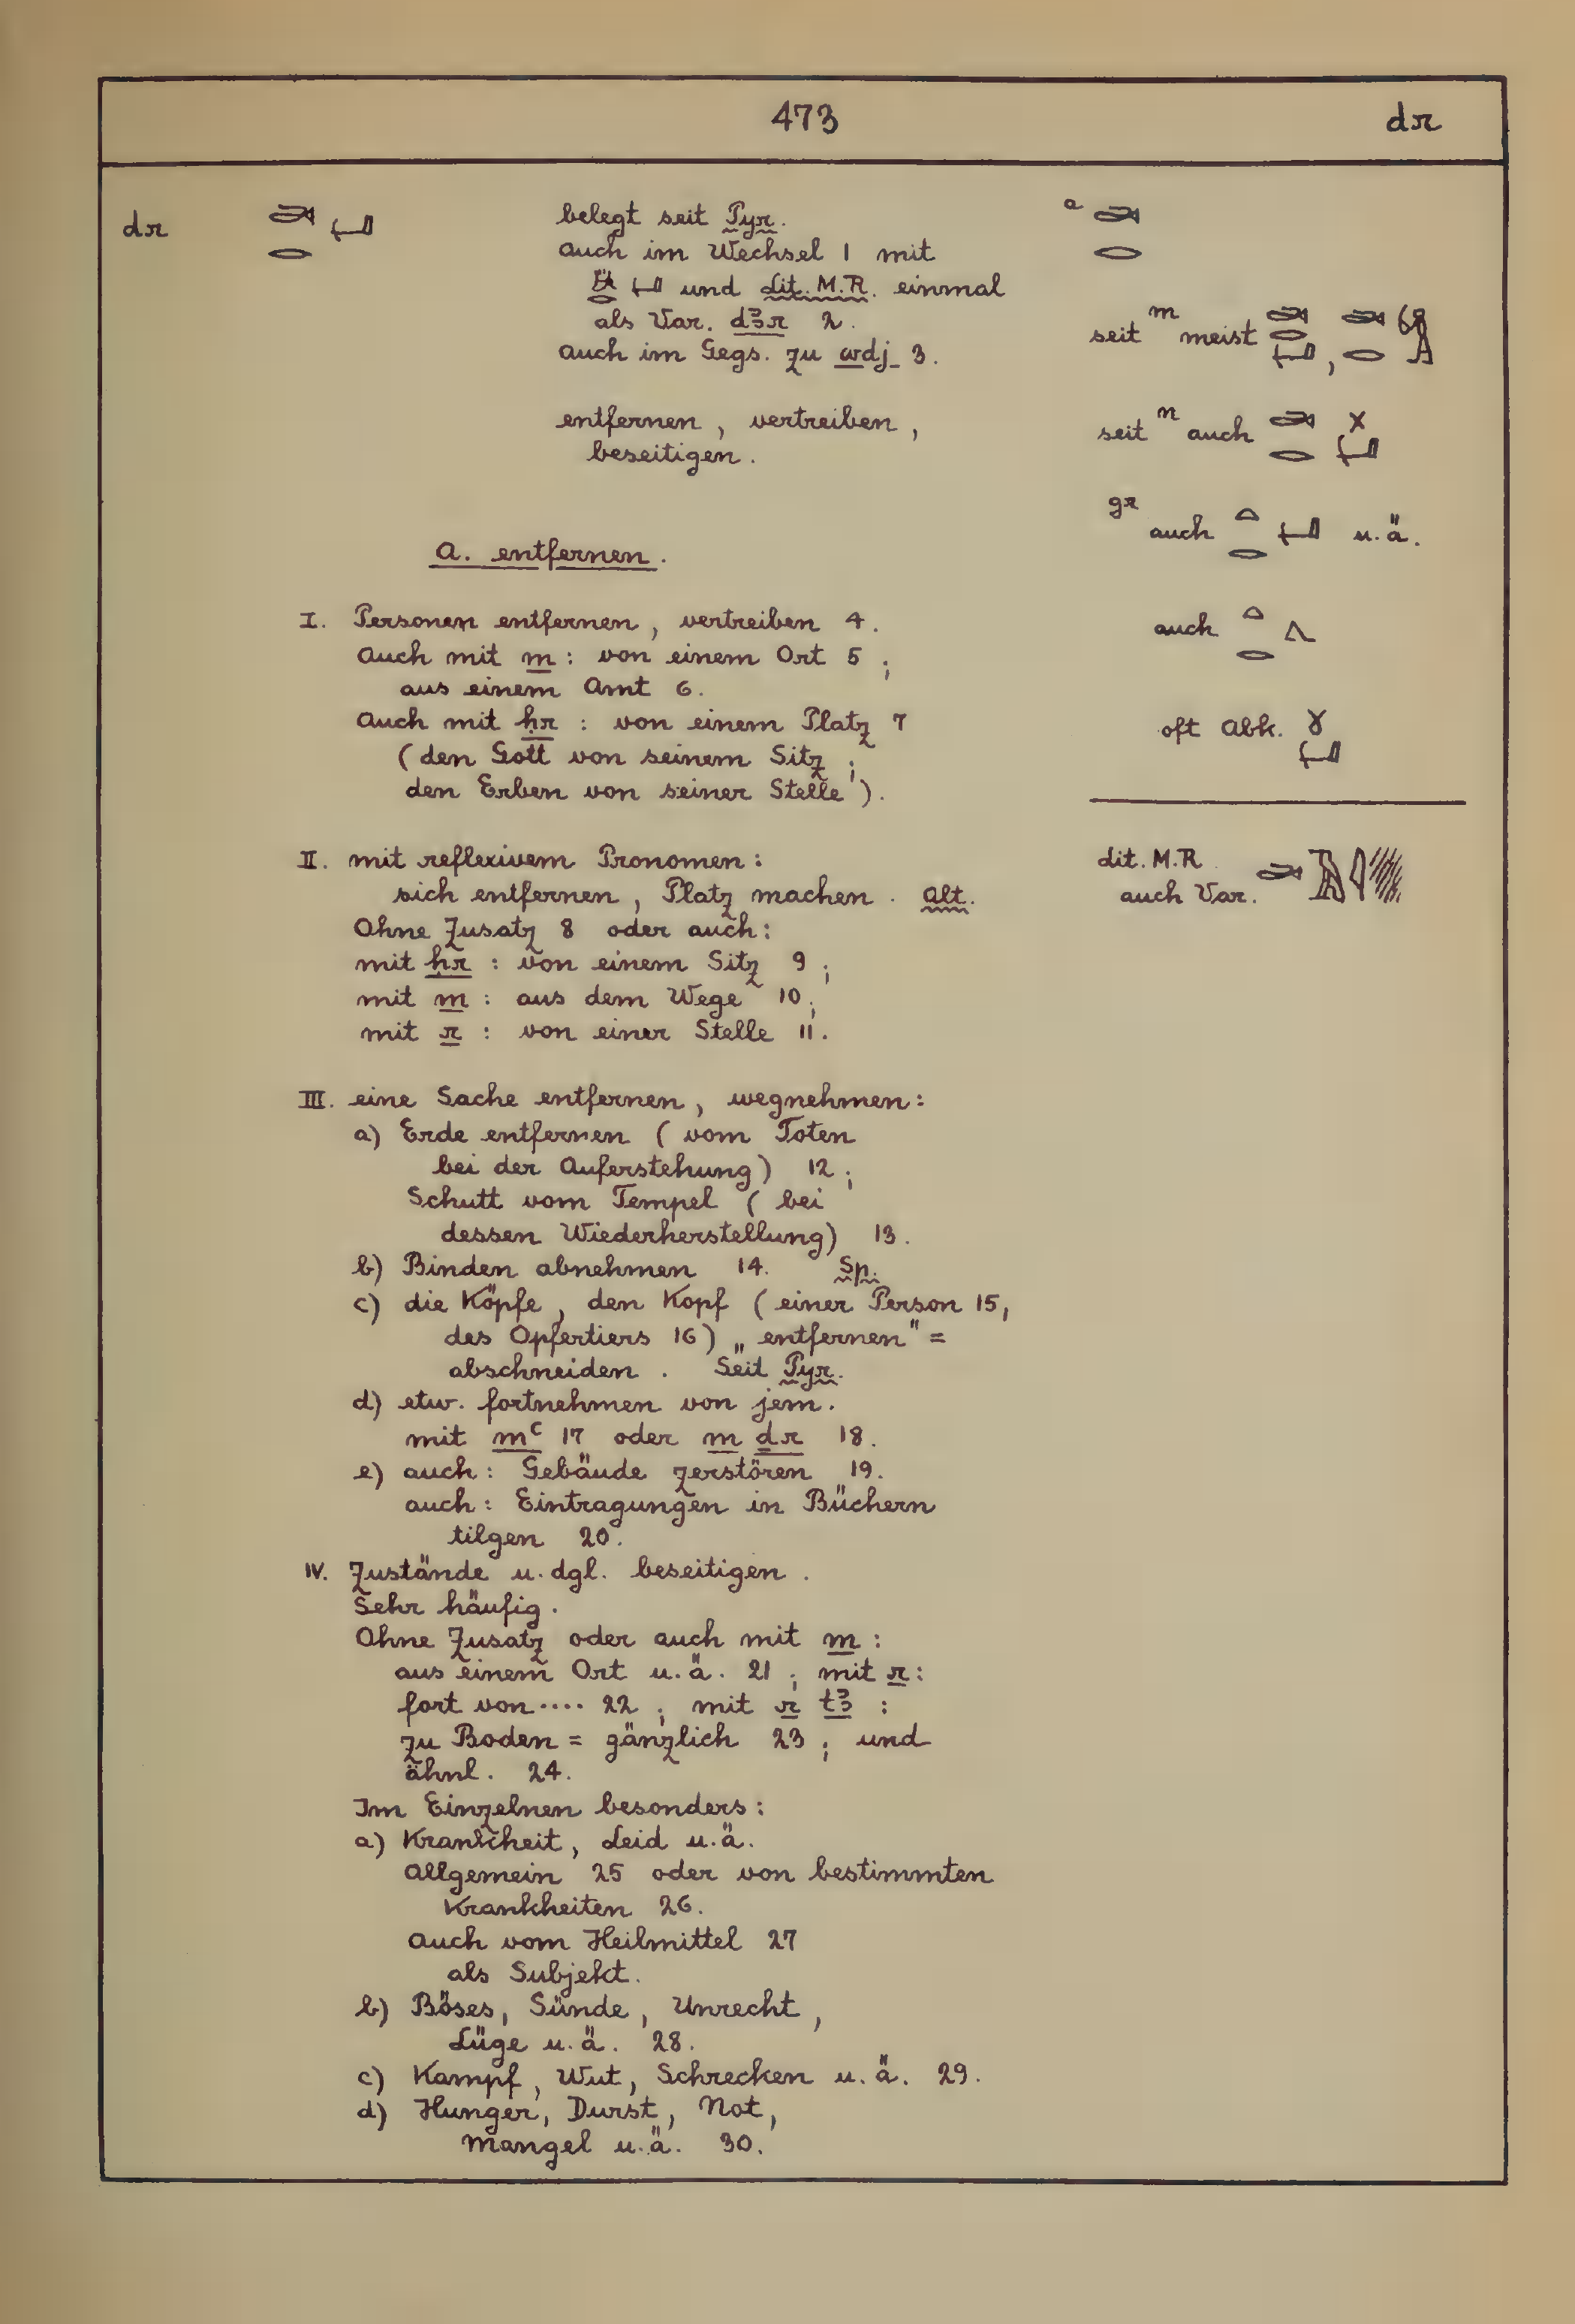 473
dr
dr
belegt seit Pyr.
auch im Wechsel 1 mit
und Lit. M.R. einmal
als Var. dꜣr 2.
auch im Gegs. zu wdj 3.
entfernen, vertreiben,
beseitigen.
A. entfernen.
I. Personen entfernen, vertreiben 4.
Auch mit m: von einem Ort 5;
aus einem Amt 6.
Auch mit ḥr: von einem Platz 7
(den Gott von seinem Sitz;
den Erben von seiner Stelle).
II. mit reflexivem Pronomen:
sich entfernen, Platz machen. Alt.
Ohne Zusatz 8 oder auch:
mit ḥr: von einem Sitz 9;
mit m: aus dem Wege 10;
mit r: von einer Stelle 11.
III. eine Sache entfernen, wegnehmen:
a) Erde entfernen (vom Toten
bei der Auferstehung) 12;
Schutt vom Tempel (bei
dessen Wiederherstellung) 13.
b) Binden abnehmen 14. Sp.
c) die Köpfe, den Kopf (einer Person 15,
des Opfertiers 16) „entfernen" =
abschneiden. Seit Pyr.
d) etw. fortnehmen von jem.
mit mꜥ 17 oder m ḏr 18.
e) auch: Gebäude zerstören 19.
auch: Eintragungen in Büchern
tilgen 20.
IV. Zustände u. dgl. beseitigen.
Sehr häufig.
Ohne Zusatz oder auch mit m:
aus einem Ort u. ä. 21; mit r:
fort von .... 22; mit r tꜣ:
zu Boden = gänzlich 23; und
ähnl. 24.
Im Einzelnen besonders:
a) Krankheit, Leid u. ä.
Allgemein 25 oder von bestimmten
Krankheiten 26.
Auch vom Heilmittel 27
als Subjekt.
b) Böses, Sünde, Unrecht,
Lüge u. ä. 28.
c) Kampf, Wut, Schrecken u. ä. 29.
d) Hunger, Durst, Not,
Mangel u. ä. 30.
a
seit m meist ,
seit n auch
gr auch u. ä.
auch
oft Abk.
Lit. M.R
auch Var.